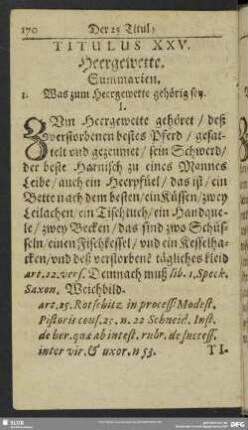 170 Der 25 Titul/
TITULUS XXV.
Heergewette.
Summarien.
1. Was zum Heergewette gehörig sey.
1.
ZVm Heergewette gehöret / deß
verstorbenen bestes Pferd / gesat-
telt vnd gezeumet / sein Schwerd/
der beste Harnisch zu eines Mannes
Leibe / auch ein Heerpfüel / das ist / ein
Bette nach dem besten / ein Küssen / zwey
Leilachen / ein Tischtuch / ein Handque-
le / zwey Becken / das sind zwo Schüs-
seln / einen Fischkessel / vnd ein Kesselha-
cken / vnd deß verstorbenē tägliches kleid
art. 22. vers. Demnach muß lib. 1. Speck.
Saxon. Weichbild-
art. 25. Rotschitz in process. Modest.
Pistoris cons. 25. n. 22 Schneid. Inst.
de her. quæ ab intest. rubr. de success.
inter vir. & uxor. n 53. TI-
SLUB
DFG